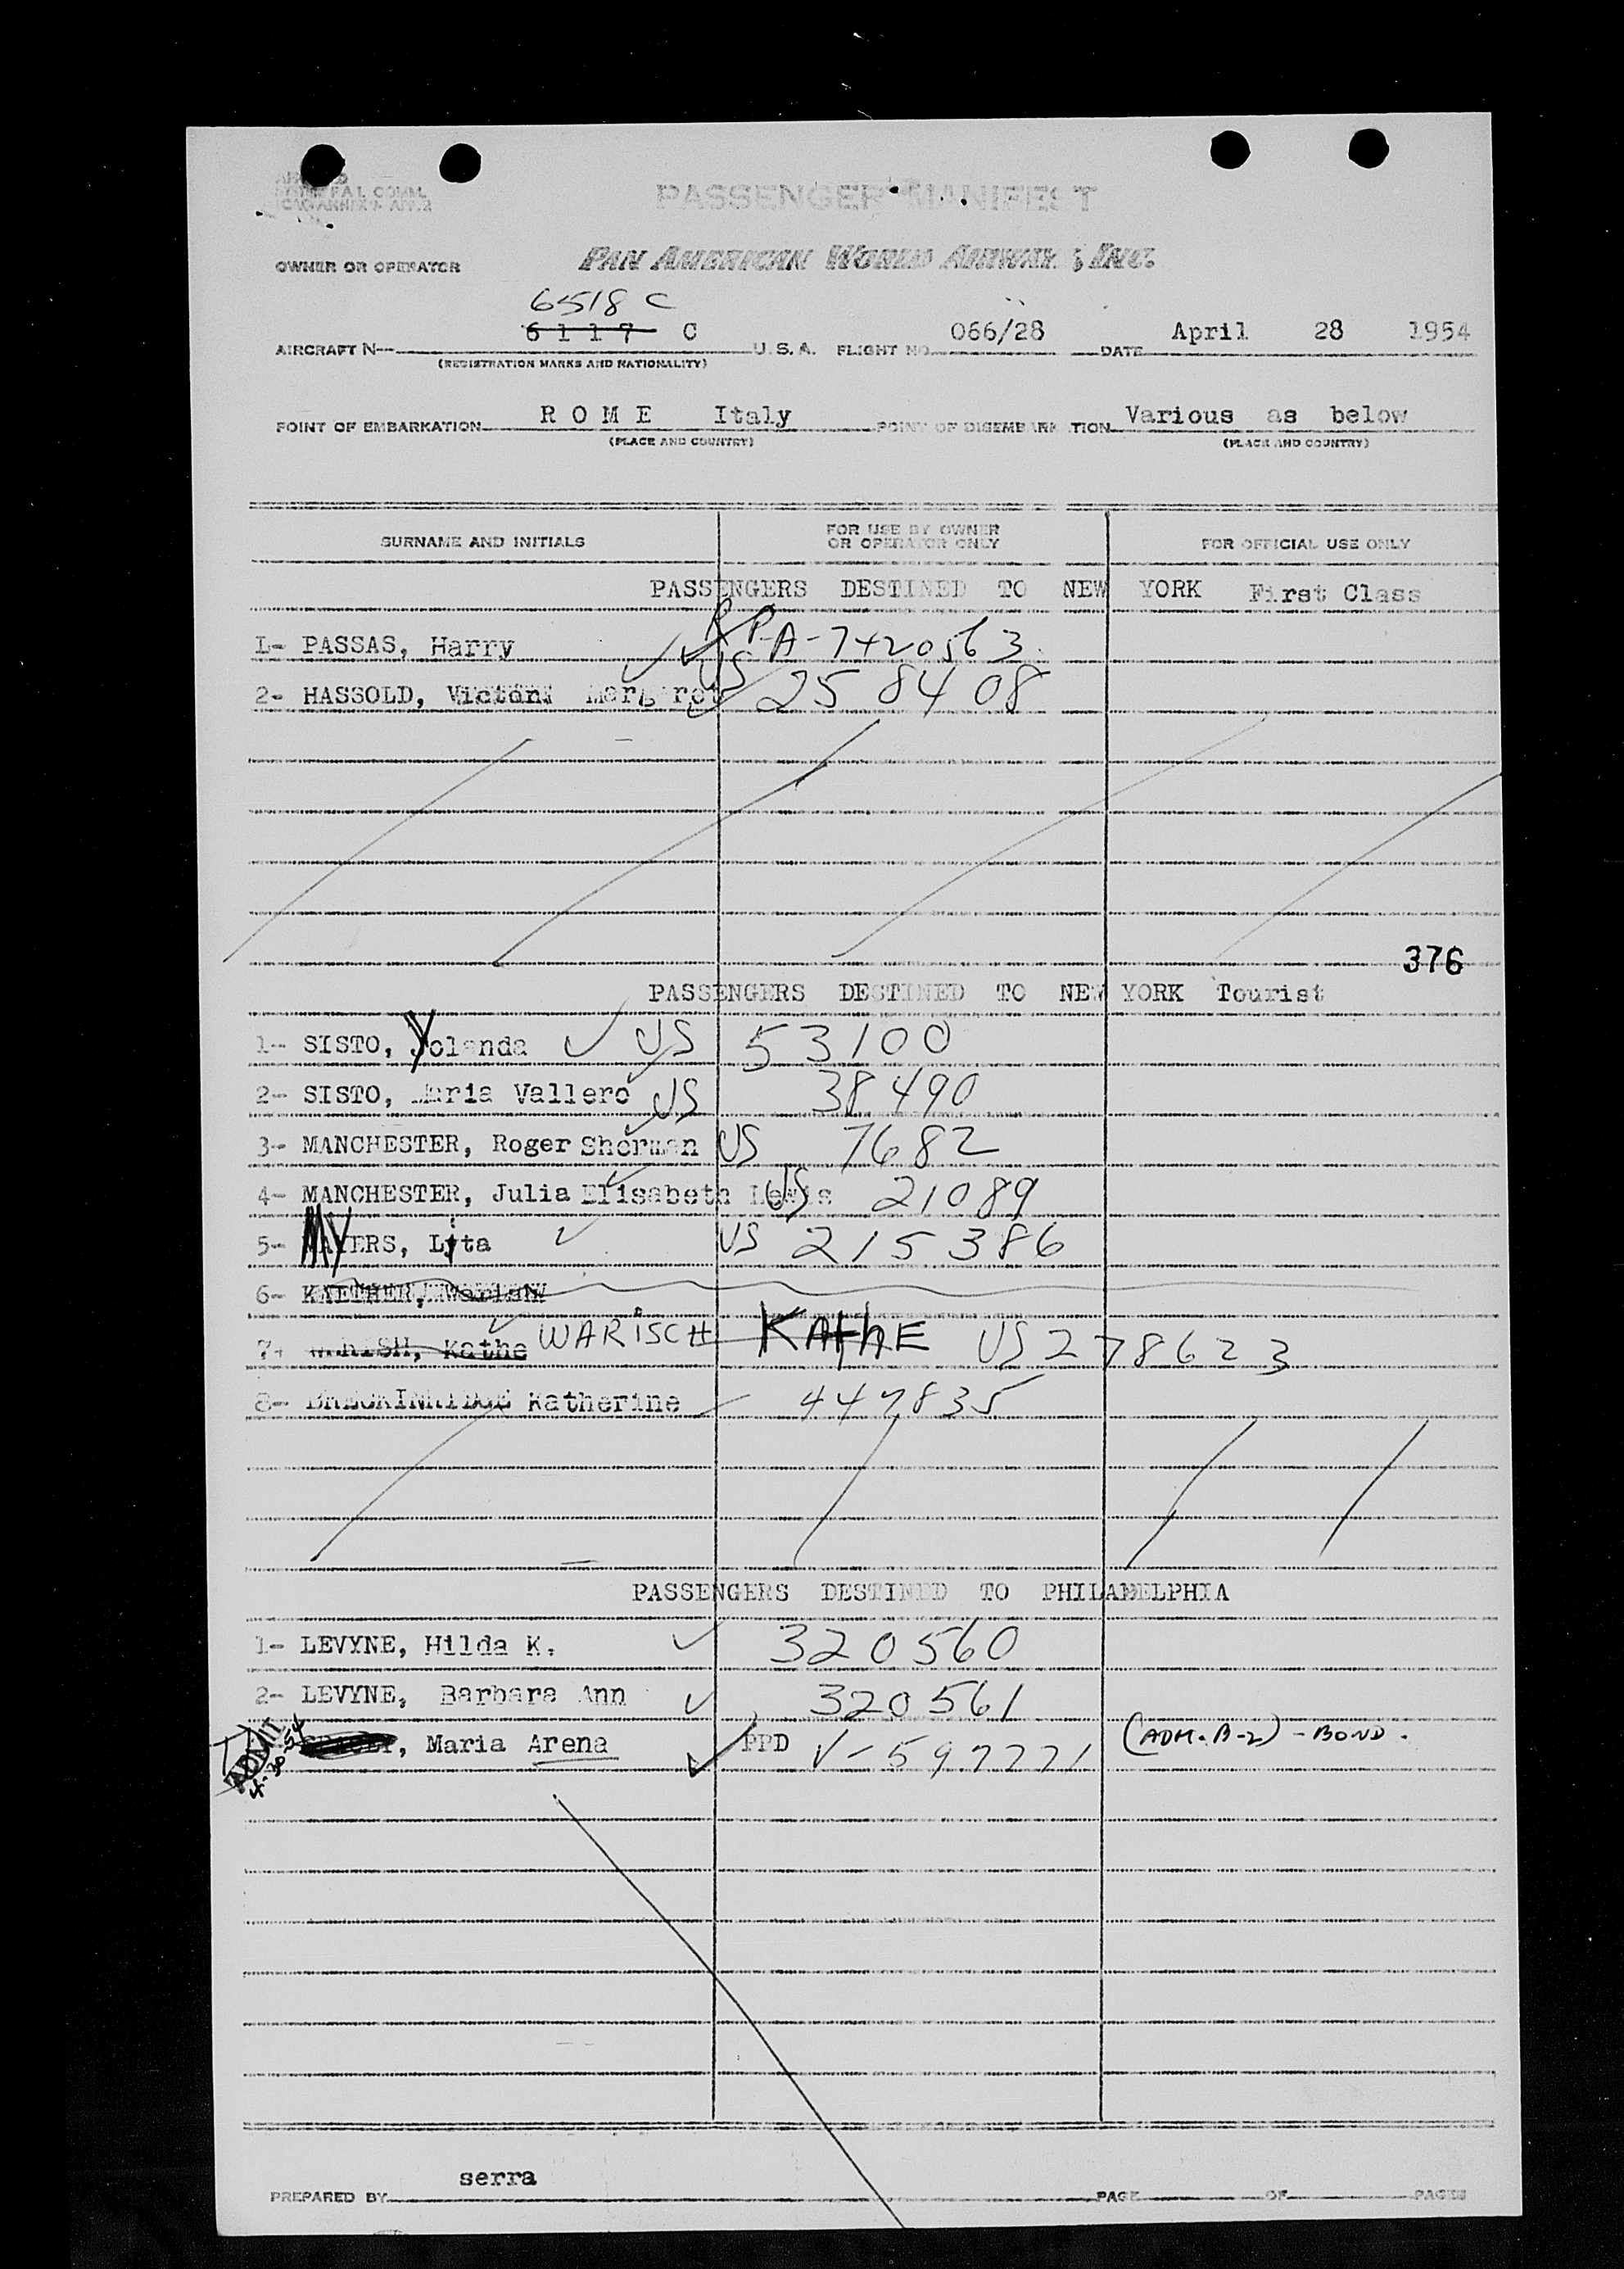 PASSENGER MANIFEST
OWNER OR OPERATOR PAN AMERICAN WORLD AIRWAYS, INC.
6518 C
6117 C
AIRCRAFT N- U.S.A. FLIGHT NO 066/28 DATE April 28 1954
(REGISTRATION MARKS AND NATIONALITY)
POINT OF EMBARKATION ROME Italy POINT OF DISEMBARKATION Various as below
(PLACE AND COUNTRY) (PLACE AND COUNTRY)
SURNAME AND INITIALS FOR USE BY OWNER OR OPERATOR ONLY FOR OFFICIAL USE ONLY
PASSENGERS DESTINED TO NEW YORK First Class
1- PASSAS, Harry RP A-7420563
2- HASSOLD, Margaret US 258408
376
PASSENGERS DESTINED TO NEW YORK Tourist
1- SISTO, Yolanda US 53100
2- SISTO, Maria Vallero US 38490
3- MANCHESTER, Roger Sherman US 7682
4- MANCHESTER, Julia Elisabeth Lewis US 21089
5- MYERS, Lita US 215386
6- KAETHER,
7- WARISH, Kathe WARISCH KAthE US 278623
8- BRECKINRIDGE Katherine 447835
PASSENGERS DESTINED TO PHILADELPHIA
1- LEVYNE, Hilda K. 320560
2- LEVYNE, Barbara Ann 320561
ADMIT 4-30-54 , Maria Arena PPD V-597771 (ADM. B-2) - BOND.
serra
PREPARED BY PAGE OF PAGES